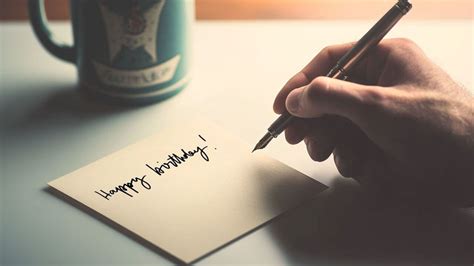 Happy birthday!